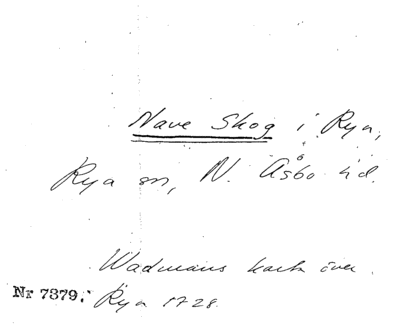 Nave Skog i Rya,
Rya sn, N. Åsbo hd.
Wadmans karta över
Nr 7379. Rya 1728.